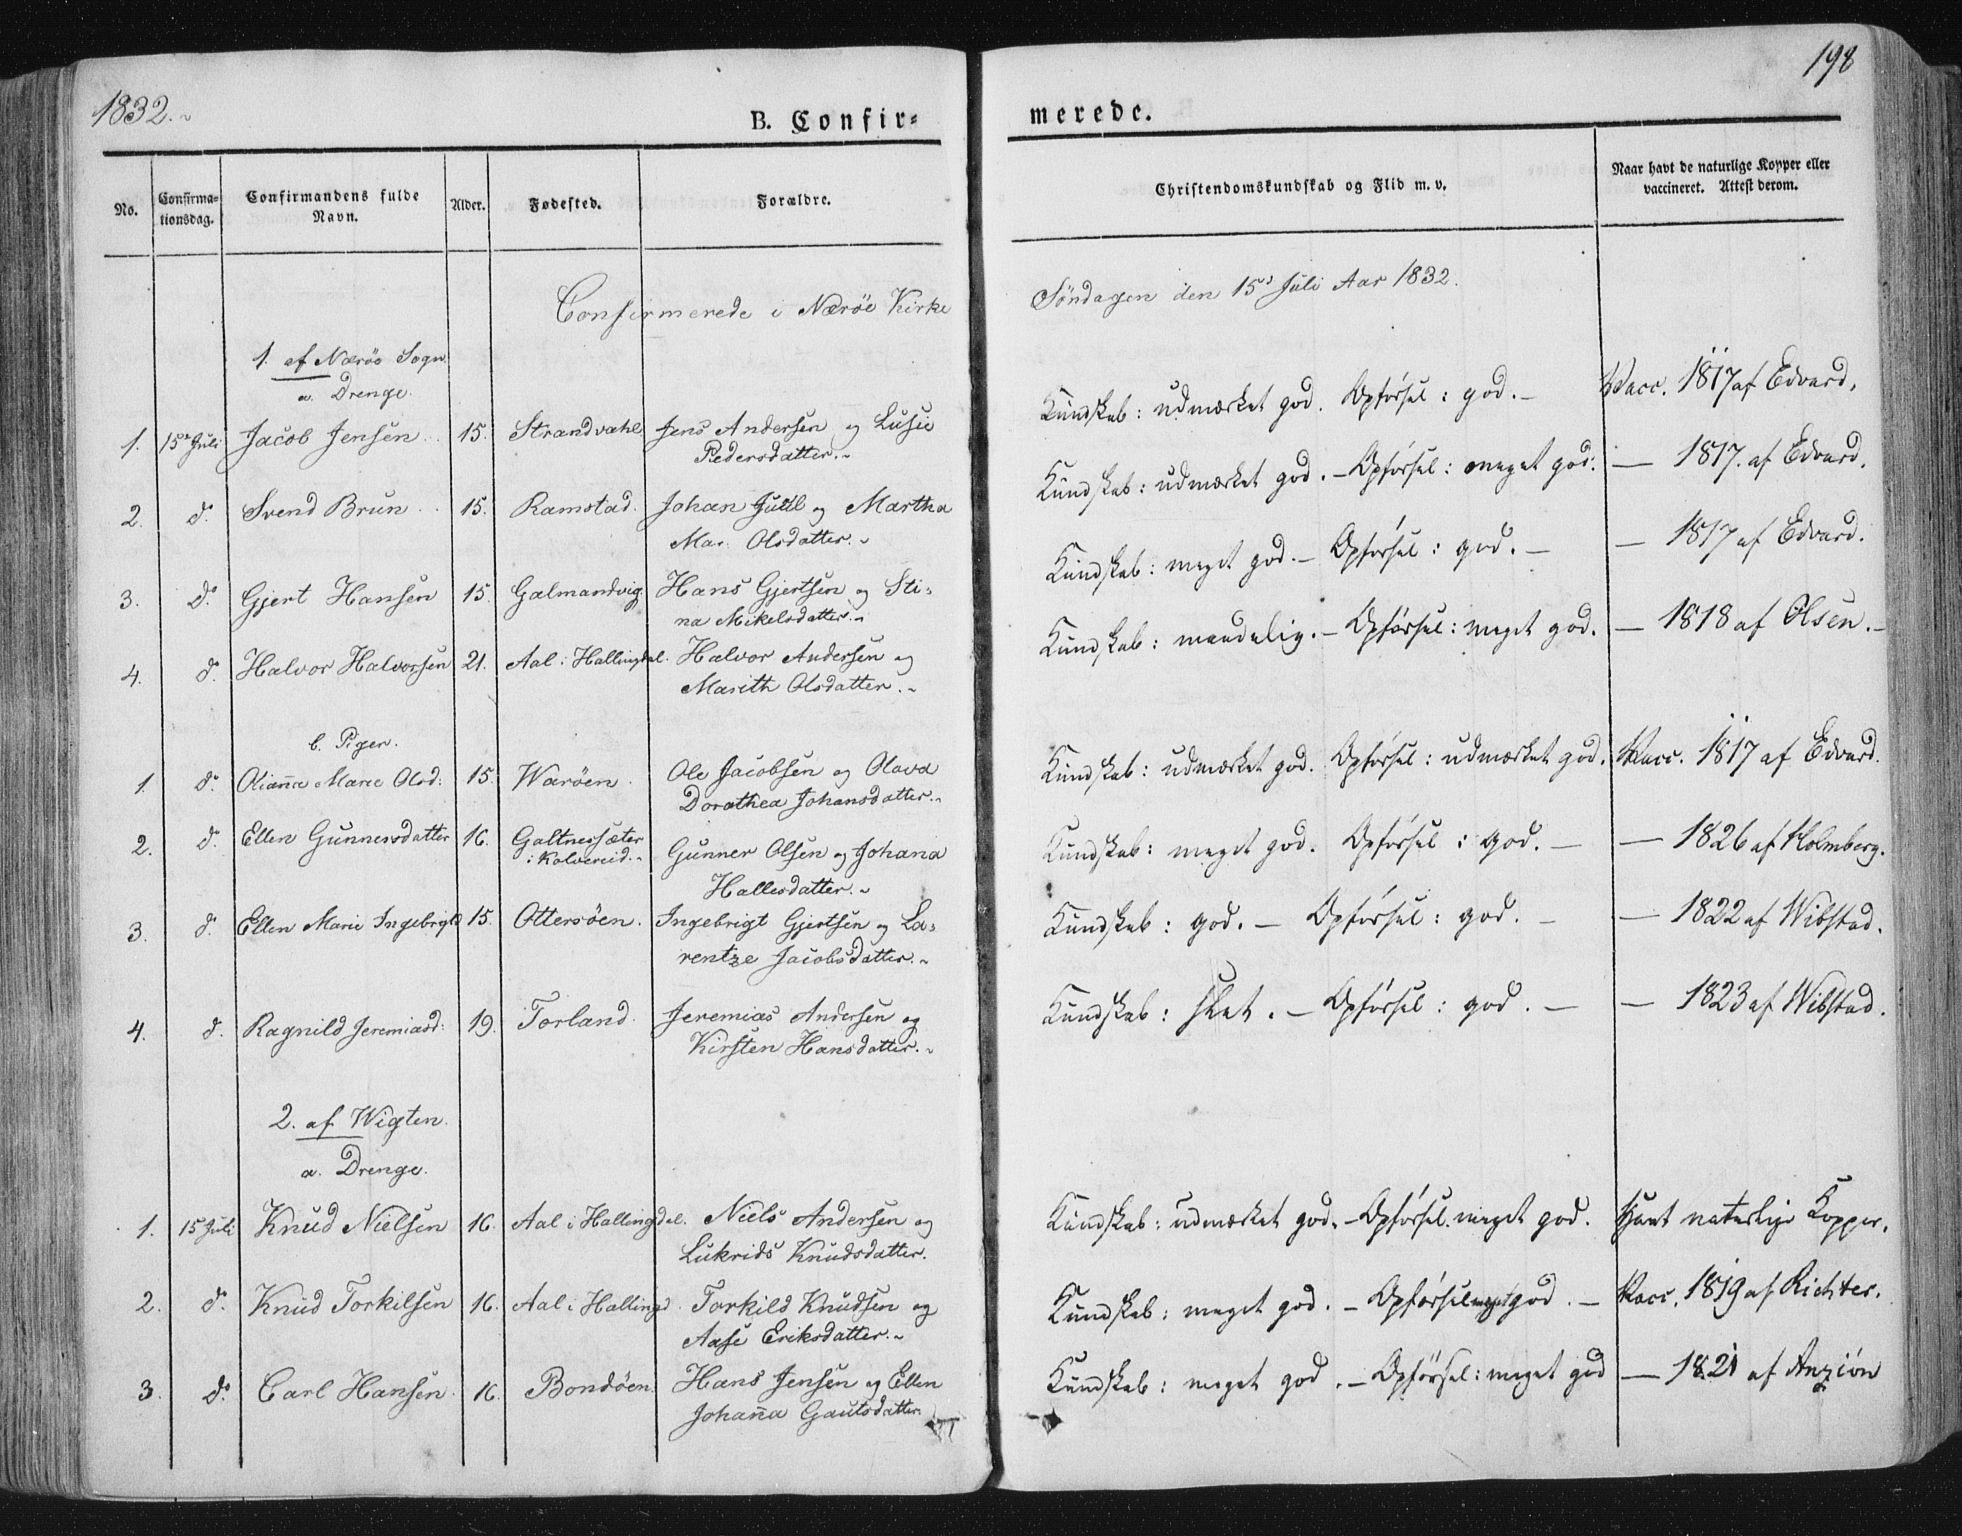 1832.
198
B. Confir=
merede.
No.
Confirma=
tionsdag.
Confirmandens fulde
Navn.
Alder.
Fødested.
Forældre.
Christendomskundskab og Flid m. v.
Naar havt de naturlige Kopper eller
vaccineret. Attest derom.
Confirmerede i Nærøe Kirke Søndagen den 15de Juli Aar 1832.
1. af Nærøe Sogn.
a. Drenge.
1. 15de Juli Jacob Jensen 15. Strandvahl Jens Andersen og Lusie Kundskab: udmærket god. Opførsel: god. Vacc. 1817 af Edvard.
Pedersdatter.
2. do. Svend Brun 15. Ramstad. Johan Juul og Martha Kundskab: udmærket god. Opførsel: meget god. — 1817. af Edvard.
Mar. Olsdatter.
3. Do. Gjert Hansen 15. Galmandvig Hans Gjertsen og Sti= Kundskab: meget god. Opførsel: god. — 1817 af Edvard.
na Mikelsdatter.
4. do. Halvor Halvorsen 21. Aal i Hallingdal. Halvor Andersen og Kundskab: maadelig. Opførsel: meget god. — 1818 af Olsen.
Marith Olsdatter.
b. Piger.
1. do. Olianna Marie Olsd: 15. Warøen. Ole Jacobsen og Olava Kundskab: udmærket god. Opførsel: udmærket god. Vacc. 1817 af Edvard.
Dorathea Johansdatter.
2. do. Ellen Gunnersdatter 16. Galtnessæter Gunner Olsen og Johana Kundskab: meget god. Opførsel: god. — 1826 af Holmberg.
i Kolvereid.
Hallesdatter.
3. do. Ellen Marie Ingebrigtd 15. Ottersøen. Ingebrigt Gjertsen og La= Kundskab: god. Opførsel: god. — 1822 af Wibstad.
rentze Jacobsdatter.
4. do. Ragnild Jeremiasd: 19. Torland. Jeremias Andersen og Kundskab: slet. Opførsel: god. — 1823 af Wibstad.
Kirsten Hansdatter.
2. af Wigten.
a. Drenge.
1. 15 Juli Knud Nielsen 16. Aal i Hallingdal. Niels Andersen og Kundskab: udmærket god. Opførsel. meget god. Havt naturlige Kopper.
Lukrids Knudsdatter.
2. do. Knud Torkilsen 16. Aal i Hallingd. Torkild Knudsen og Kundskab: meget god. Opførsel meget god. Vacc. 1819 af Richter.
Aase Eriksdatter.
3. do. Carl Hansen. 16. Bondøen. Hans Jensen og Ellen Kundskab: meget god. Opførsel: meget god — 1821 af Anzión
Johanna Gautsdatter.